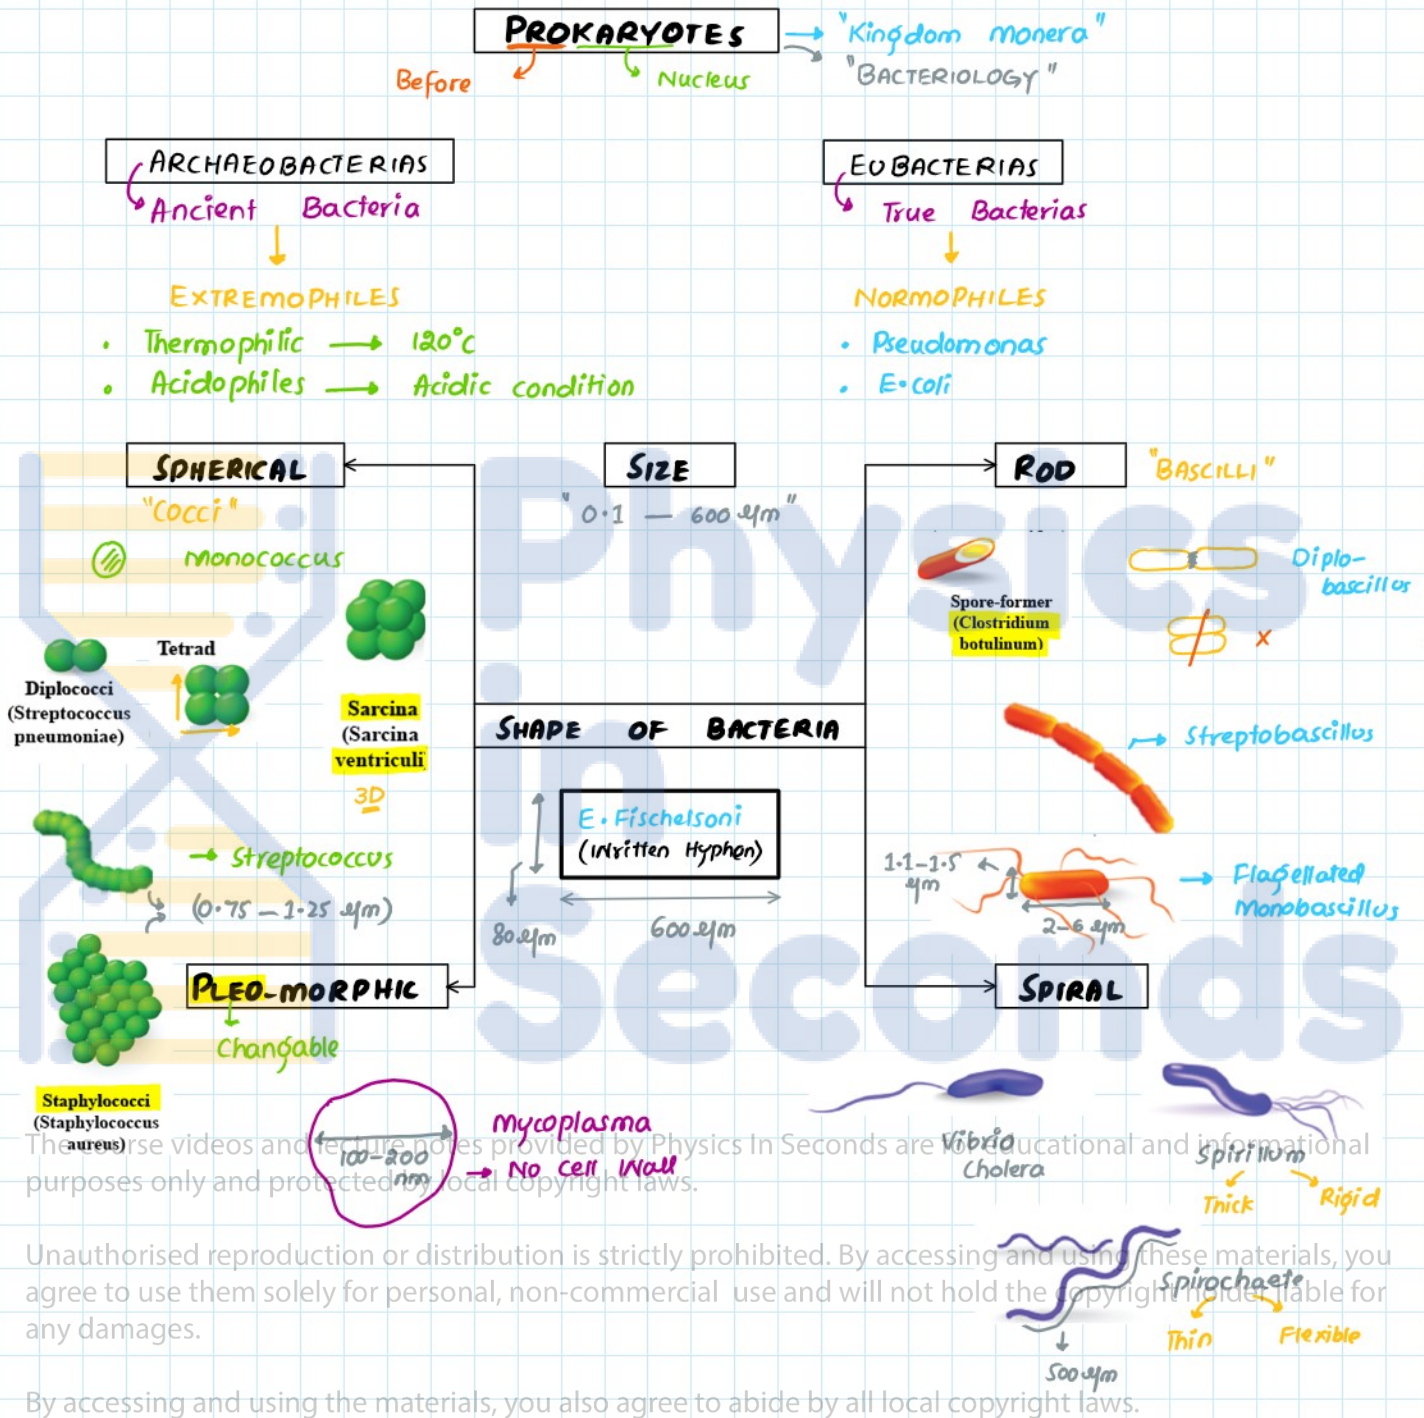 PROKARYOTES
"Kingdom monera"
"BACTERIOLOGY"
Before
Nucleus
ARCHAEOBACTERIAS
Ancient Bacteria
EXTREMOPHILES
• Thermophilic → 120°C
• Acidophiles → Acidic condition
EUBACTERIAS
True Bacterias
NORMOPHILES
• Pseudomonas
• E•coli
SPHERICAL
"Cocci"
monococcus
Diplococci
(Streptococcus
pneumoniae)
Tetrad
Sarcina
(Sarcina
ventriculi
3D
→ Streptococcus
(0.75 – 1.25 µm)
Staphylococci
(Staphylococcus
aureus)
SIZE
"0.1 — 600 µm"
SHAPE OF BACTERIA
E. Fischelsoni
(Written Hyphen)
80µm
600µm
ROD
"BASCILLI"
Spore-former
(Clostridium
botulinum)
Diplo-
bascillus
x
→ Streptobascillus
1.1–1.5
µm
2–6 µm
→ Flagellated
Monobascillus
PLEO-MORPHIC
Changable
100–200
nm
Mycoplasma
→ No cell Wall
SPIRAL
Vibrio
Cholera
Spirillum
Thick
Rigid
Spirochaete
Thin
Flexible
500µm
Physics
in
Seconds
The course videos and lecture notes provided by Physics In Seconds are for educational and informational
purposes only and protected by local copyright laws.
Unauthorised reproduction or distribution is strictly prohibited. By accessing and using these materials, you
agree to use them solely for personal, non-commercial use and will not hold the copyright holder liable for
any damages.
By accessing and using the materials, you also agree to abide by all local copyright laws.